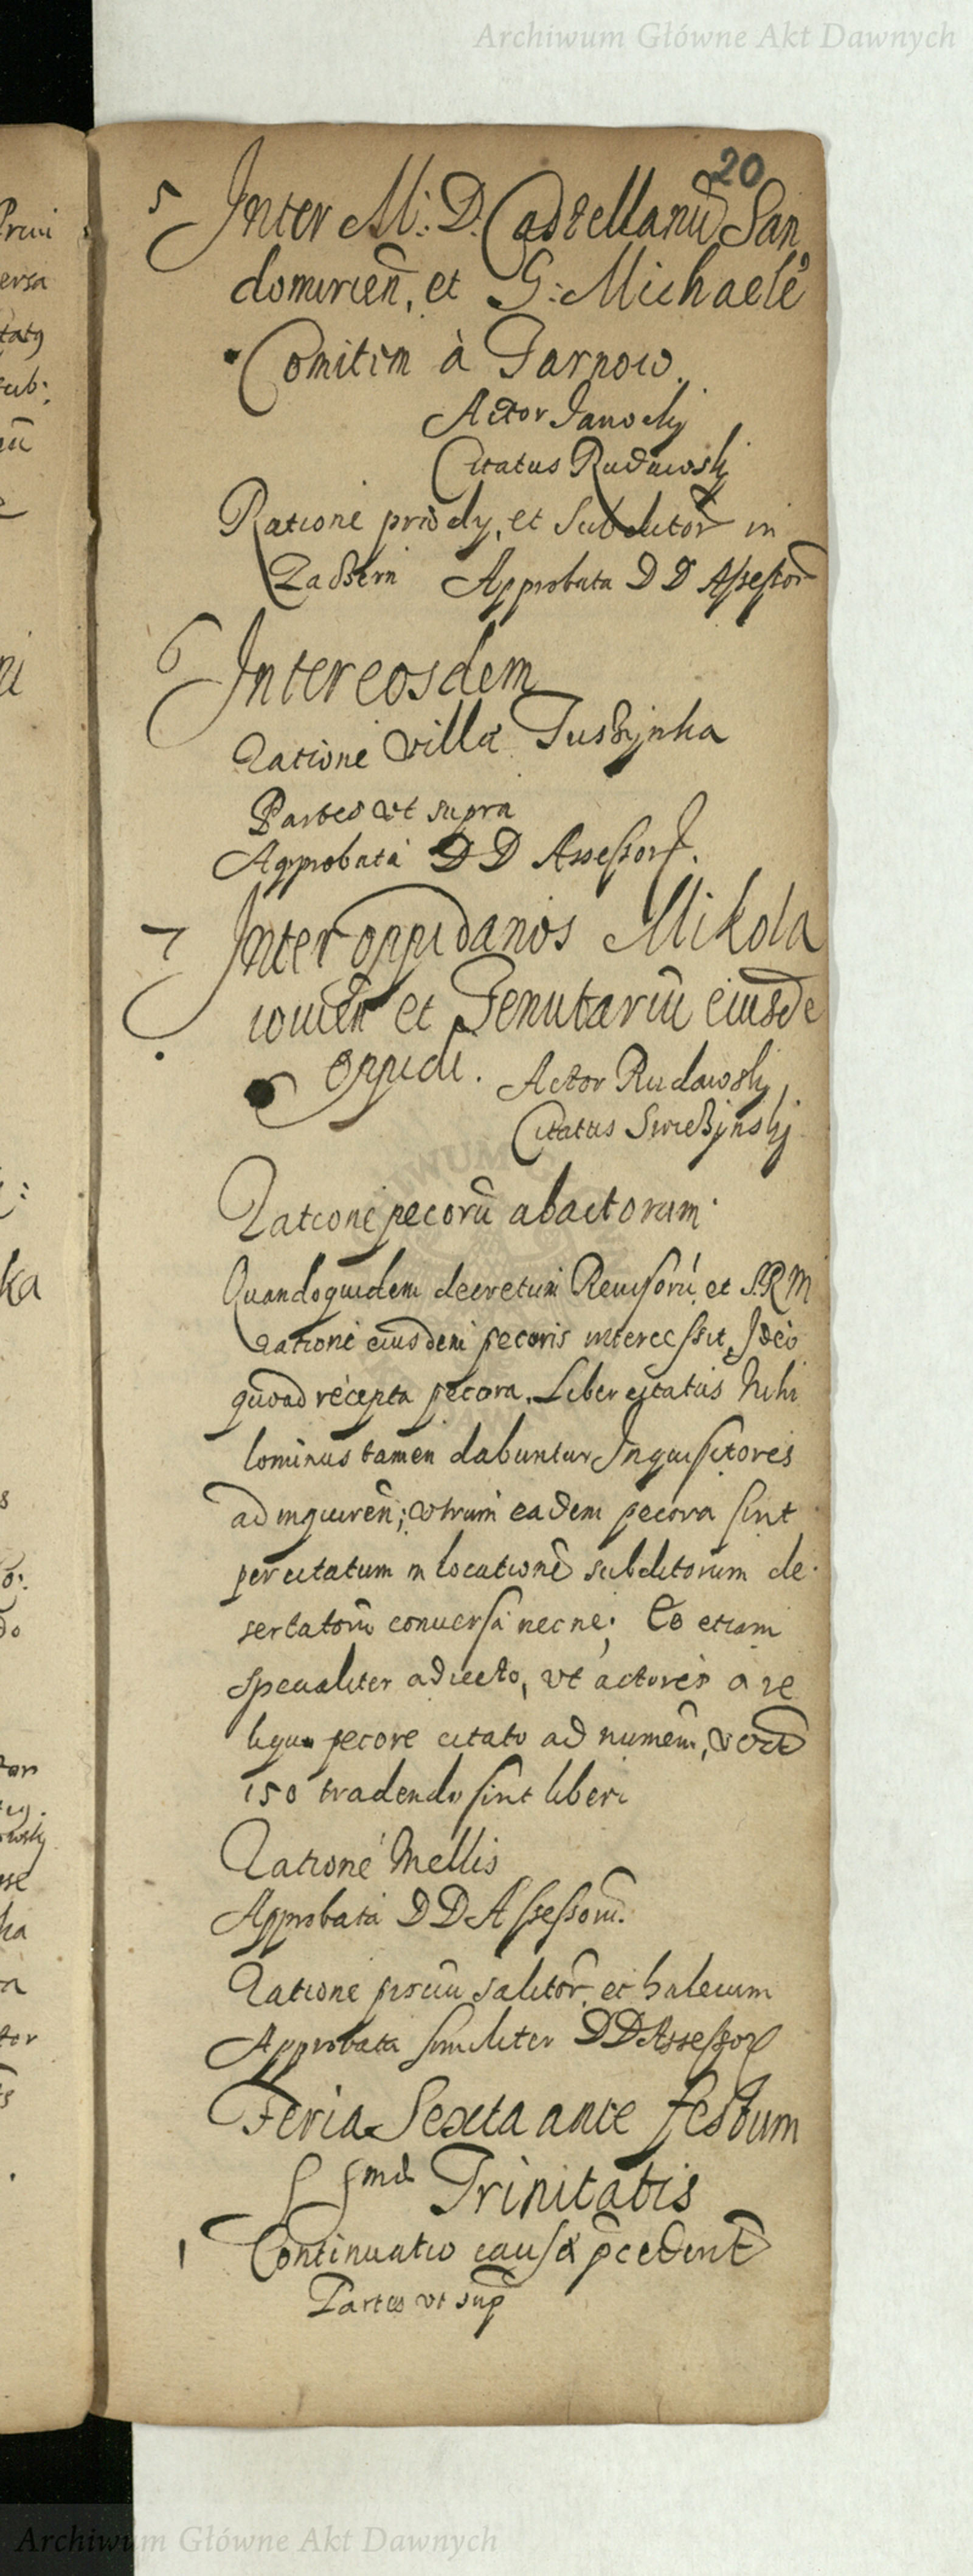 Archiwum Główne Akt Dawnych
20
5 Inter M: D. Castellanũ San
domirien̄, et G: Michaelē
Comitem à Tarnow.
Actor Janockj
Citatus Rudawskj
Ratione et Subditor in
Approbata D D Assessor
6 Inter eosdem
Ratione villæ Tuszynka
Partes vt supra
Approbata D D Assessor.
7 Inter oppidanos Mikola
iowien̄ et Tenutariũ eiusdē
oppidi. Actor Rudawskj,
Citatus Swieszynskj
Ratione pecorũ abactorum.
Quandoquidem decretum Reuisorũ et S.R.M
ratione eiusdem pecoris intercessit, Ideo
quoad recepta pecora. Liber citatus Nihi
lominus tamen dabuntur Inquisitores
ad inquiren̄; vtrum eadem pecora sint
per citatum in locationẽ subditorum de
sertatorũ conuersa nec ne; Eo etiam
specialiter adiecto, vt actores a re
liquo pecore citato ad numerũ,
150 tradendo sint liberi
Ratione Mellis
Approbata D D Assessorũ.
Ratione pisciũ salitor̃. et halecum
Approbata similiter D D Assessor
Feria Sexta ante festum
S Smæ Trinitatis
1 Continuatio causæ p̄cedent
Partes vt sup̄
Archiwum Główne Akt Dawnych